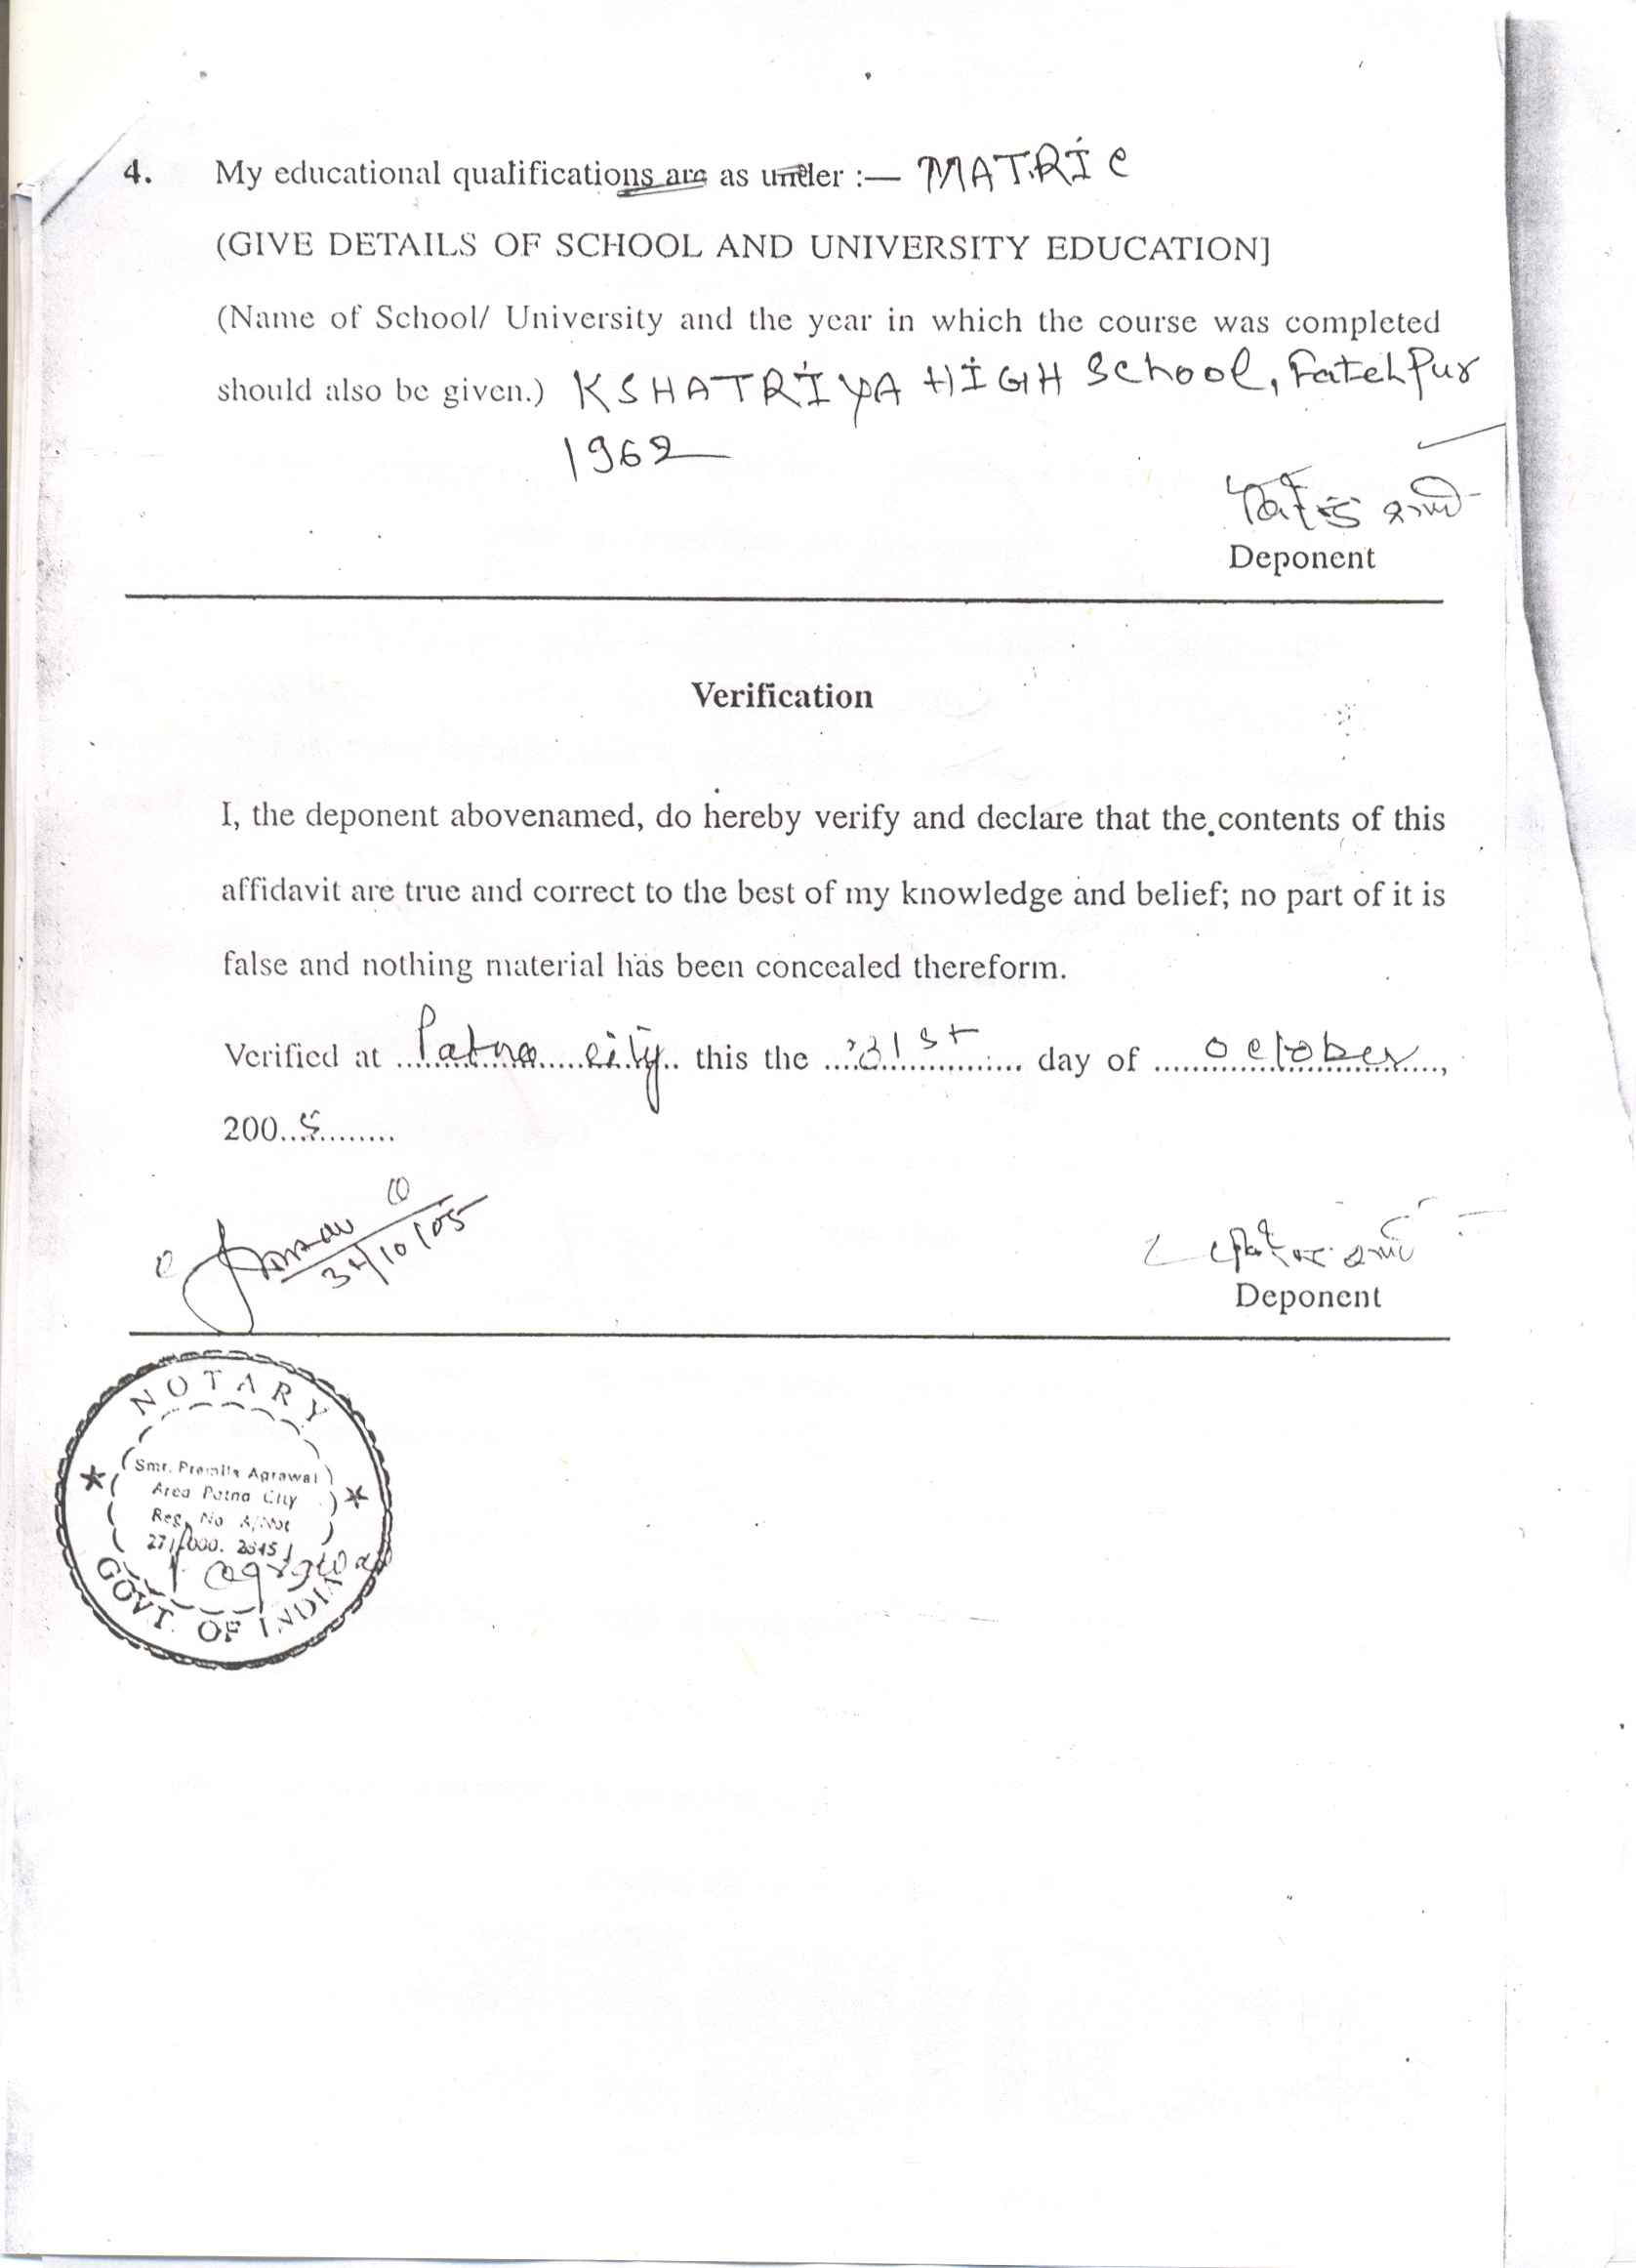 4. My educational qualifications are as under :— MATRIC
(GIVE DETAILS OF SCHOOL AND UNIVERSITY EDUCATION]
(Name of School/ University and the year in which the course was completed
should also be given.) KSHATRIYA HIGH School, Fatehpur
1962
Deponent
Verification
I, the deponent abovenamed, do hereby verify and declare that the contents of this
affidavit are true and correct to the best of my knowledge and belief; no part of it is
false and nothing material has been concealed thereform.
Verified at Patna city this the 31st day of october,
200 5
31/10/05
Deponent
NOTARY
Smt. Premila Agrawal
Area Patna City
Reg. No
GOVT. OF INDIA